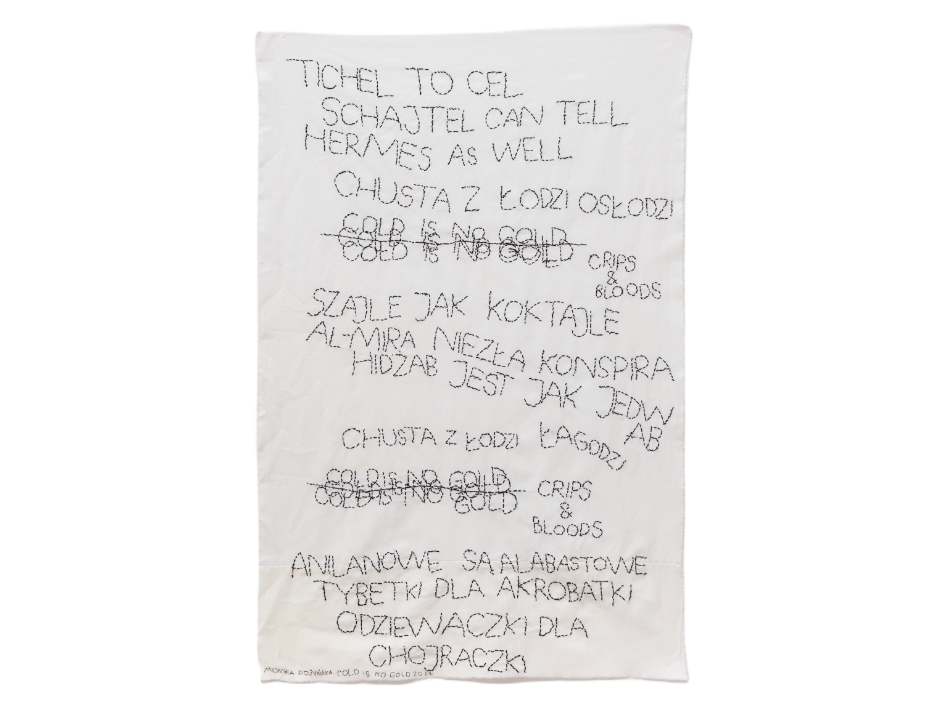 TICHEL TO CEL
SCHAJTEL CAN TELL
HERMES AS WELL
CHUSTA Z ŁODZI OSŁODZI
COLD IS NO GOLD
COLD IS NO GOLD
CRIPS
&
BLOODS
SZAJLE JAK KOKTAJLE
AL-MIRA NIEZŁA KONSPIRA
HIDŻAB JEST JAK JEDW
AB
CHUSTA Z ŁODZI ŁAGODZI
COLD IS NO GOLD
COLD IS NO GOLD
CRIPS
&
BLOODS
ANILANOWE SĄ ALABASTOWE
TYBETKI DLA AKROBATKI
ODZIEWACZKI DLA
CHOJRACZKI
MONIKA COLD IS NO GOLD